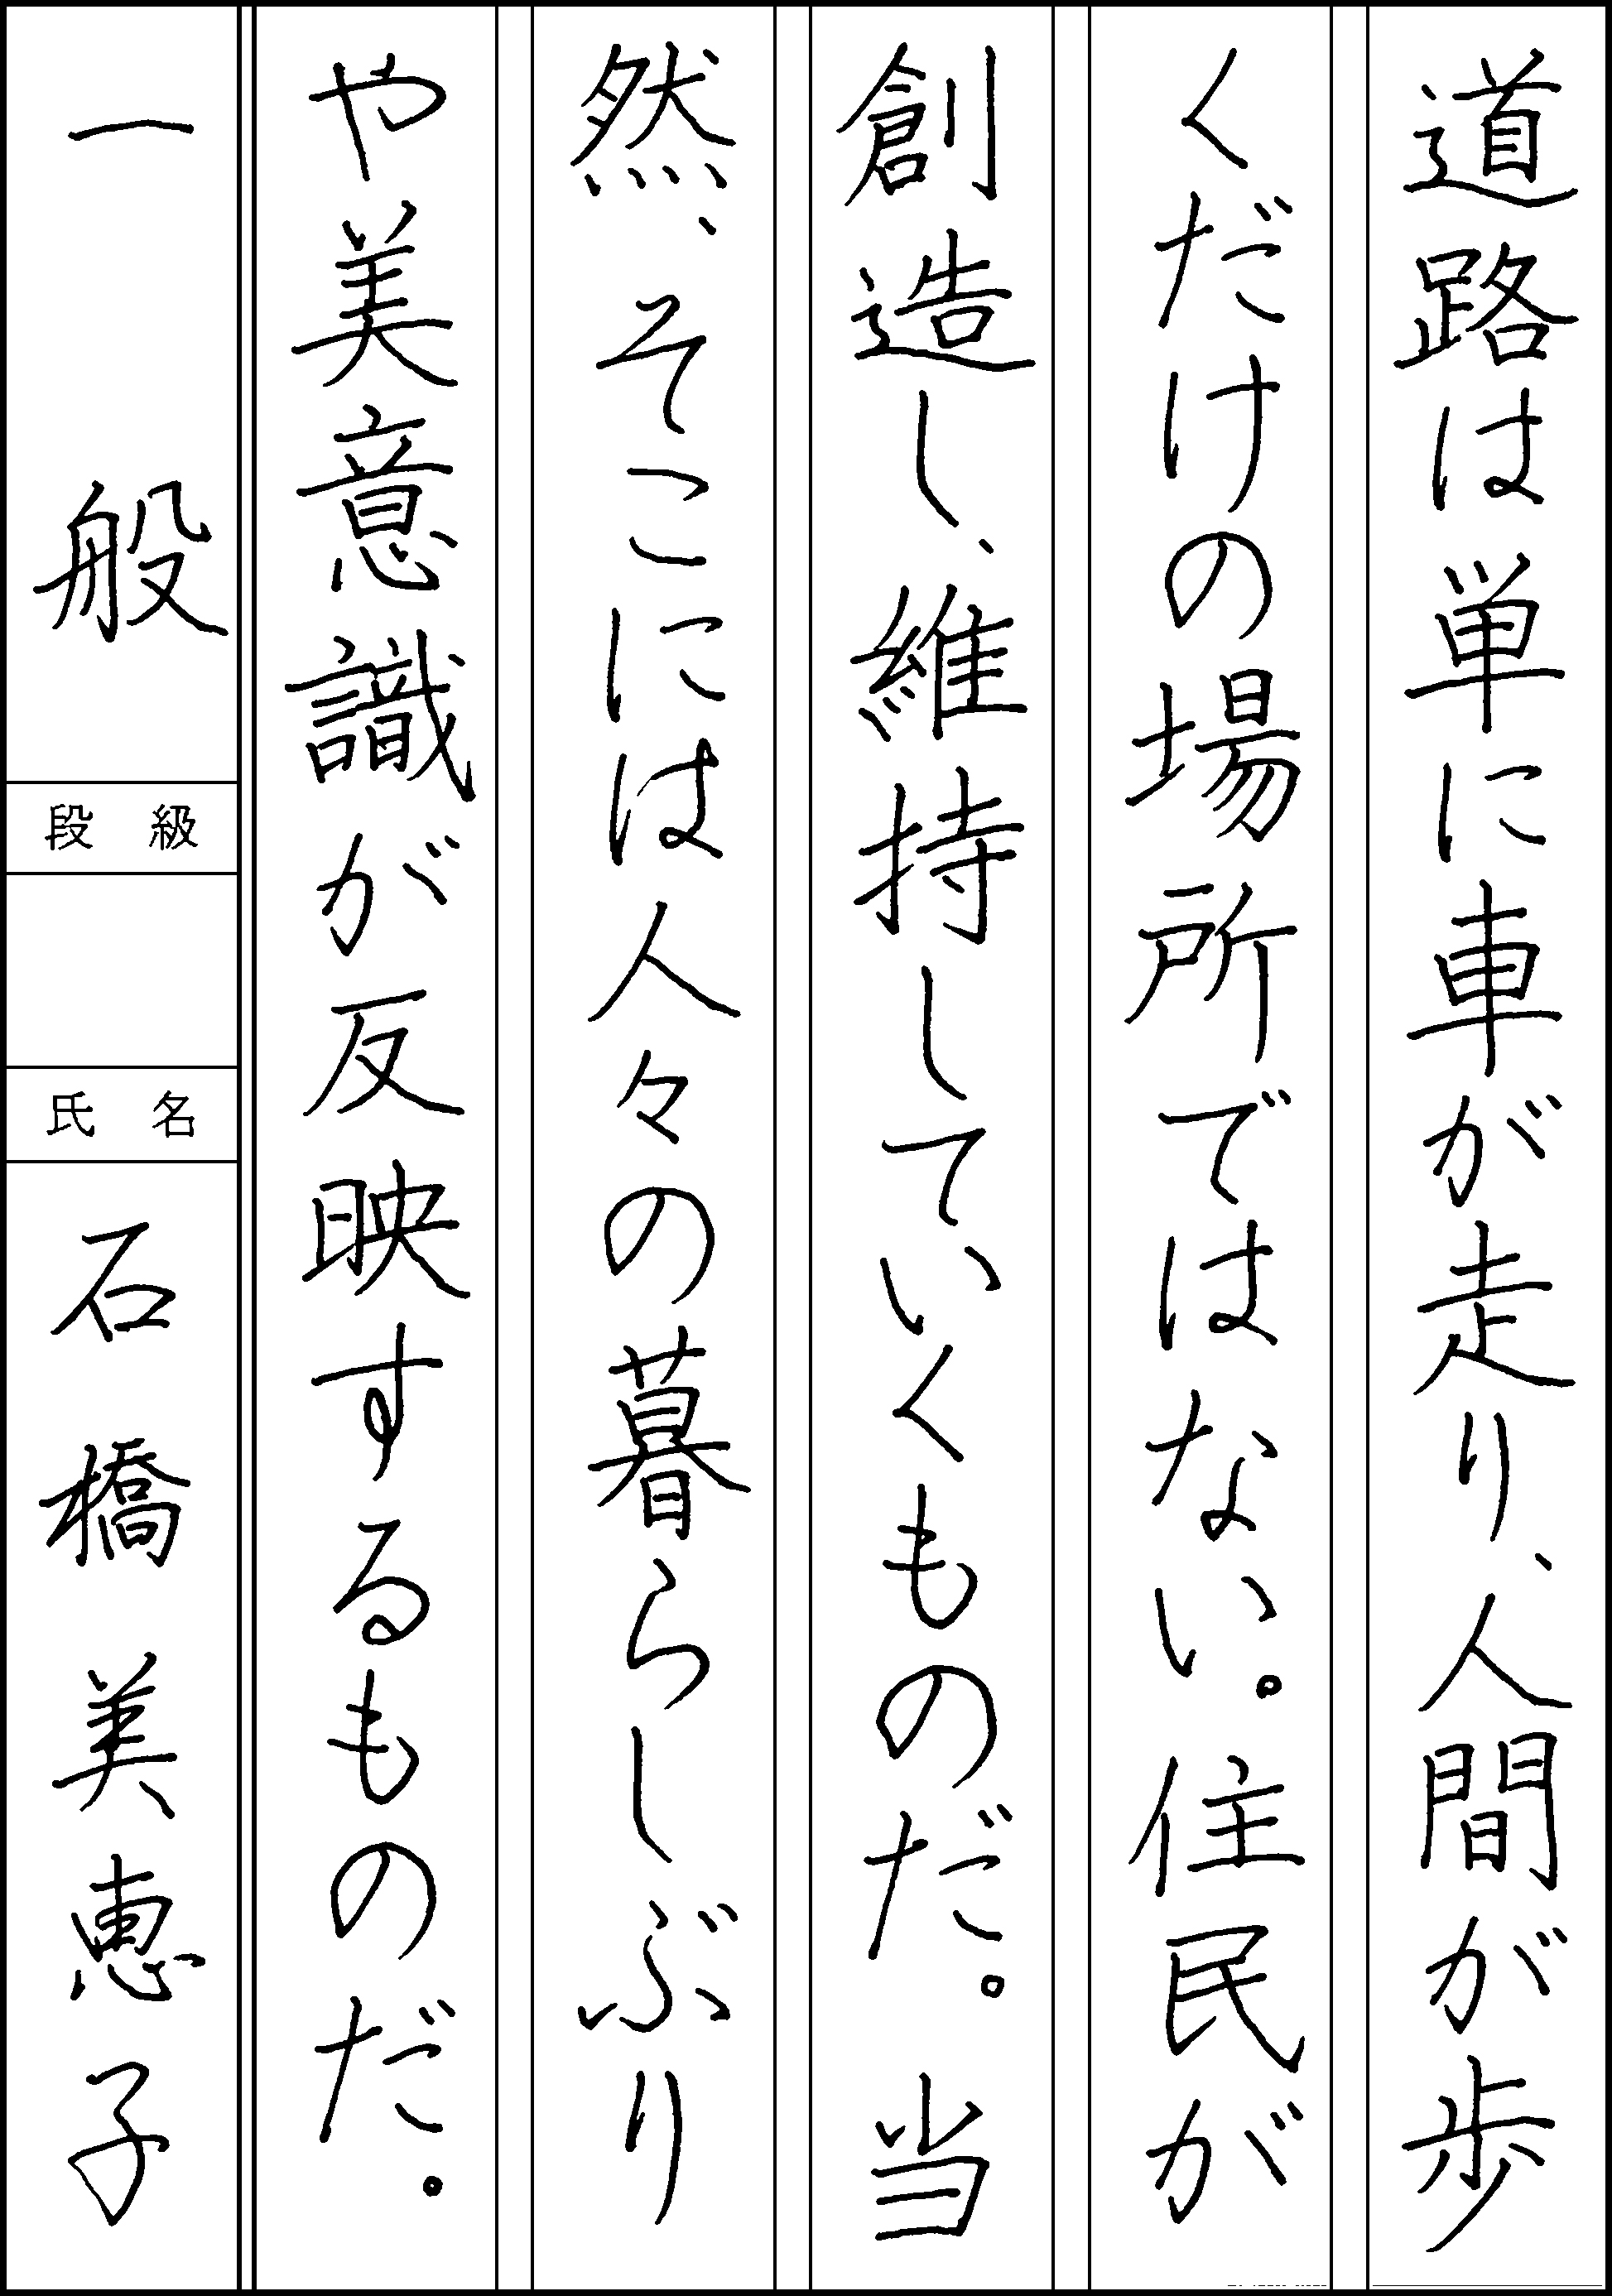 道路は単に車が走り、人間が歩
くだけの場所ではない。住民が
創造し、維持していくものだ。当
然、そこには人々の暮らしぶり
や美意識が反映するものだ。
一般
段級
氏名
石橋美恵子